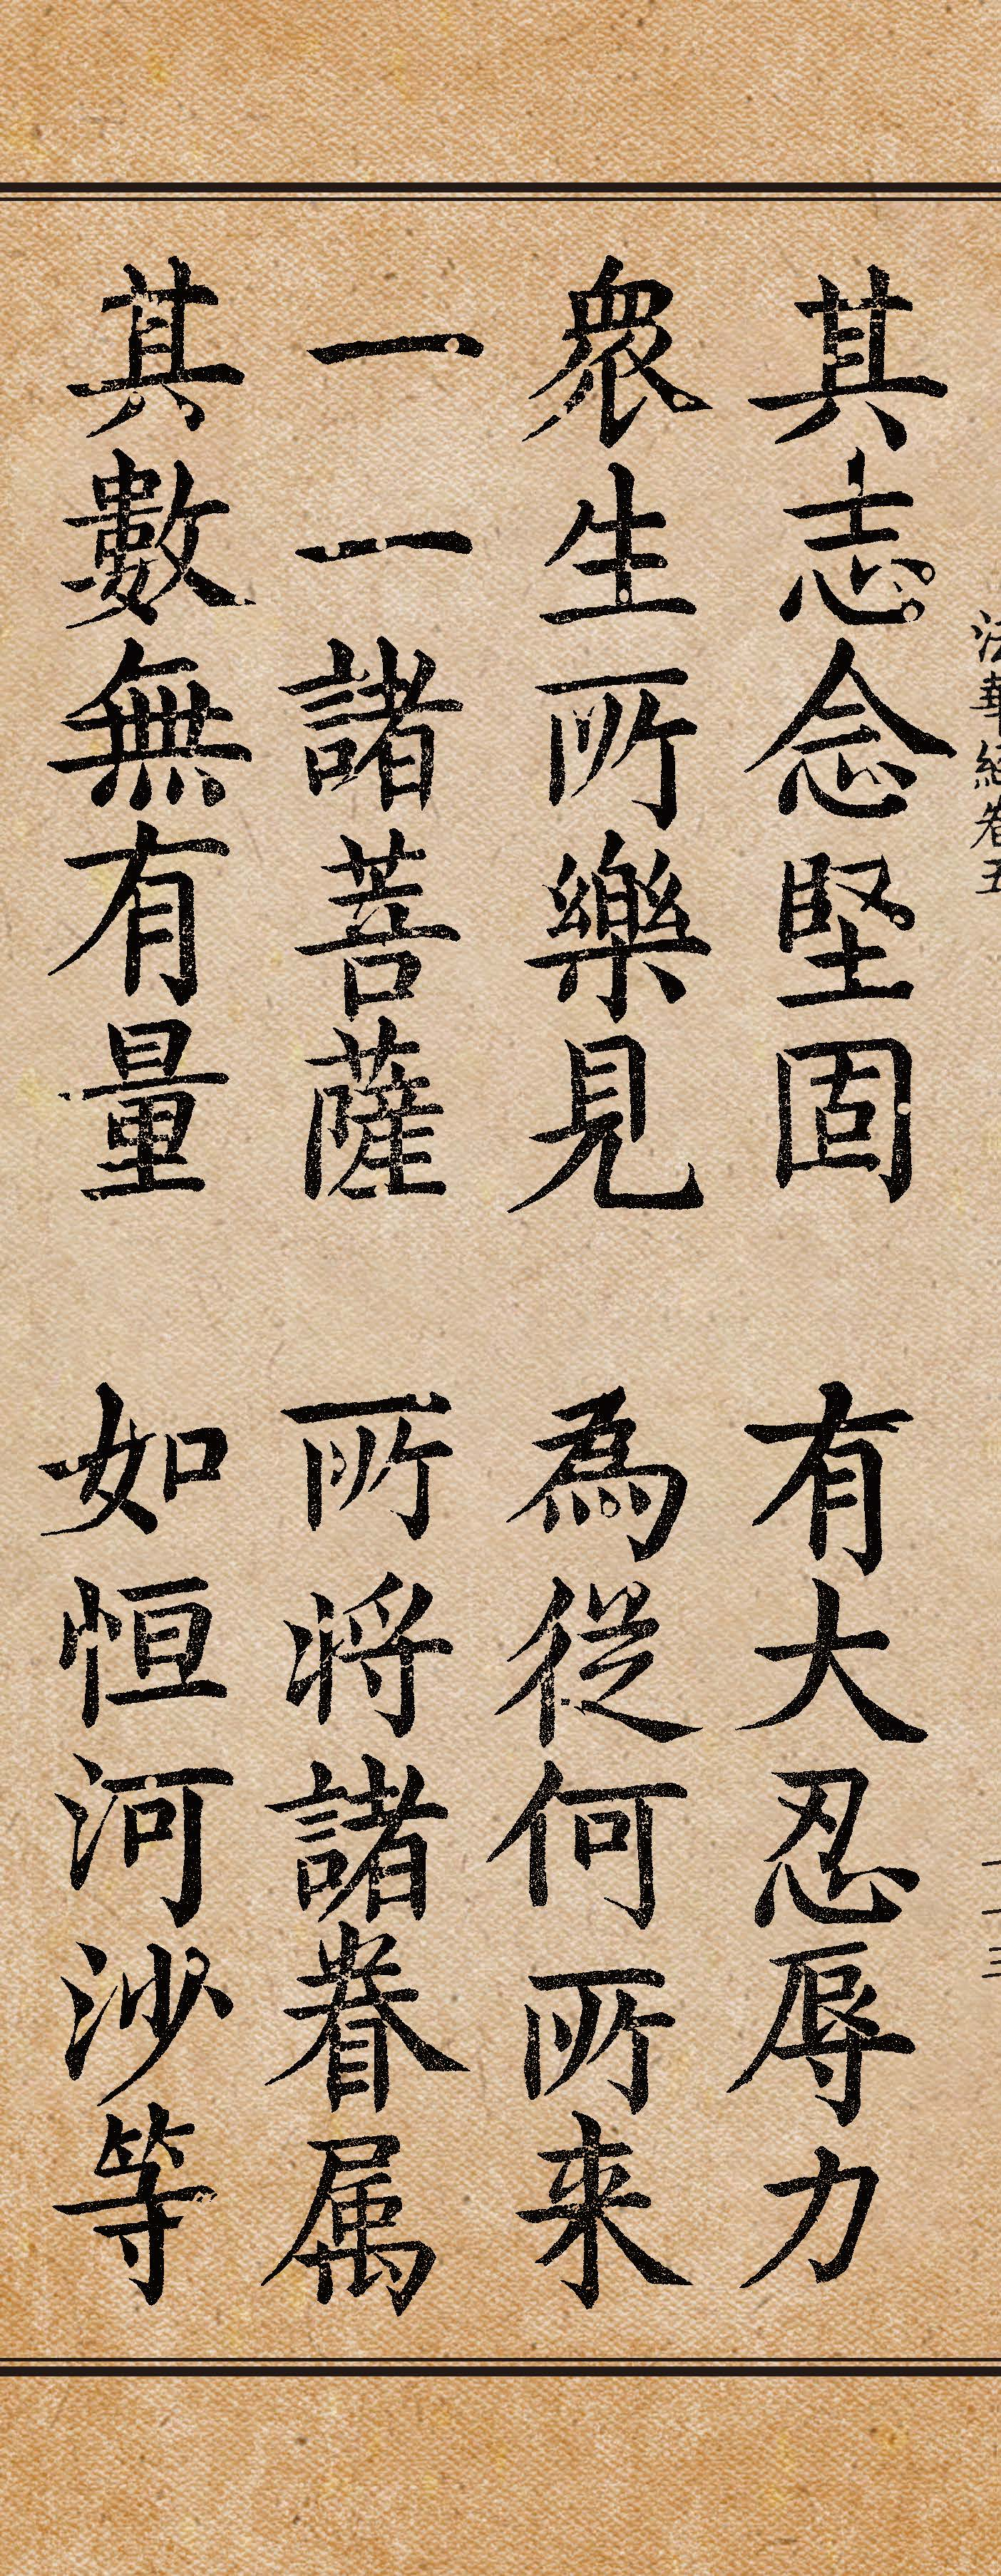 法華經卷五
十三
其志念堅固　有大忍辱力
衆生所樂見　為從何所来
一一諸菩薩　所將諸眷属
其數無有量　如恒河沙等